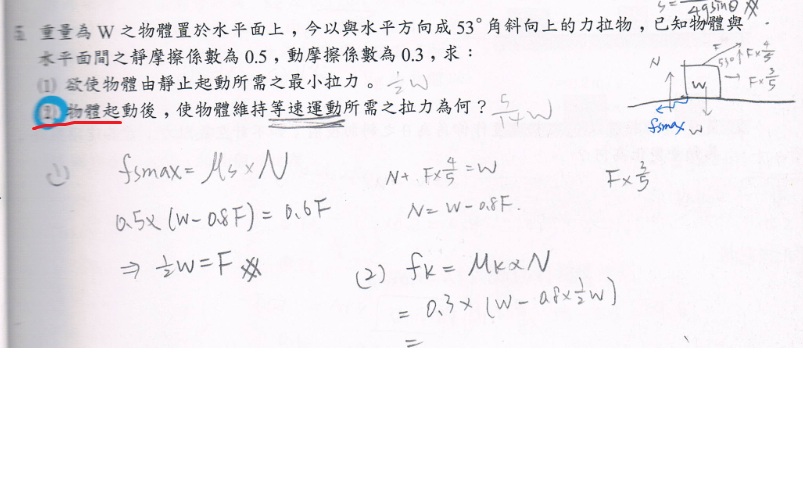 S = ― / 49sinθ
五 重量為 W 之物體置於水平面上，今以與水平方向成 53° 角斜向上的力拉物，已知物體與
水平面間之靜摩擦係數為 0.5，動摩擦係數為 0.3，求：
(1) 欲使物體由靜止起動所需之最小拉力。 1/2 W
(2) 物體起動後，使物體維持等速運動所需之拉力為何？ 5/14 W
N F 53° F×4/5
W F×3/5
fsmax W
(1) fsmax = μs × N
N + F×4/5 = W
F×3/5
0.5×(W-0.8F) = 0.6F
N = W-0.8F.
⇒ 1/2 W = F
(2) fk = μk × N
= 0.3×(W-0.8×1/2W)
=